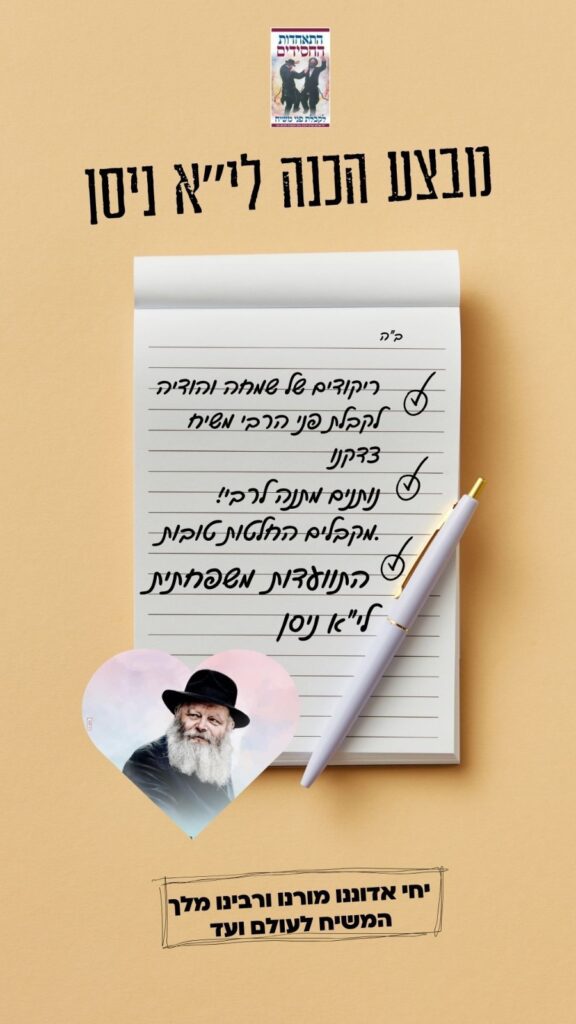 התאחדות
החסידים
לקבלת פני משיח
מבצע הכנה לי"א ניסן
ב"ה
ריקודים של שמחה והודיה
לקבלת פני הרבי משיח
צדקנו
נותנים מתנה לרבי!
מקבלים החלטות טובות.
התוועדות משפחתית
לי"א ניסן
יחי אדוננו מורנו ורבינו מלך
המשיח לעולם ועד